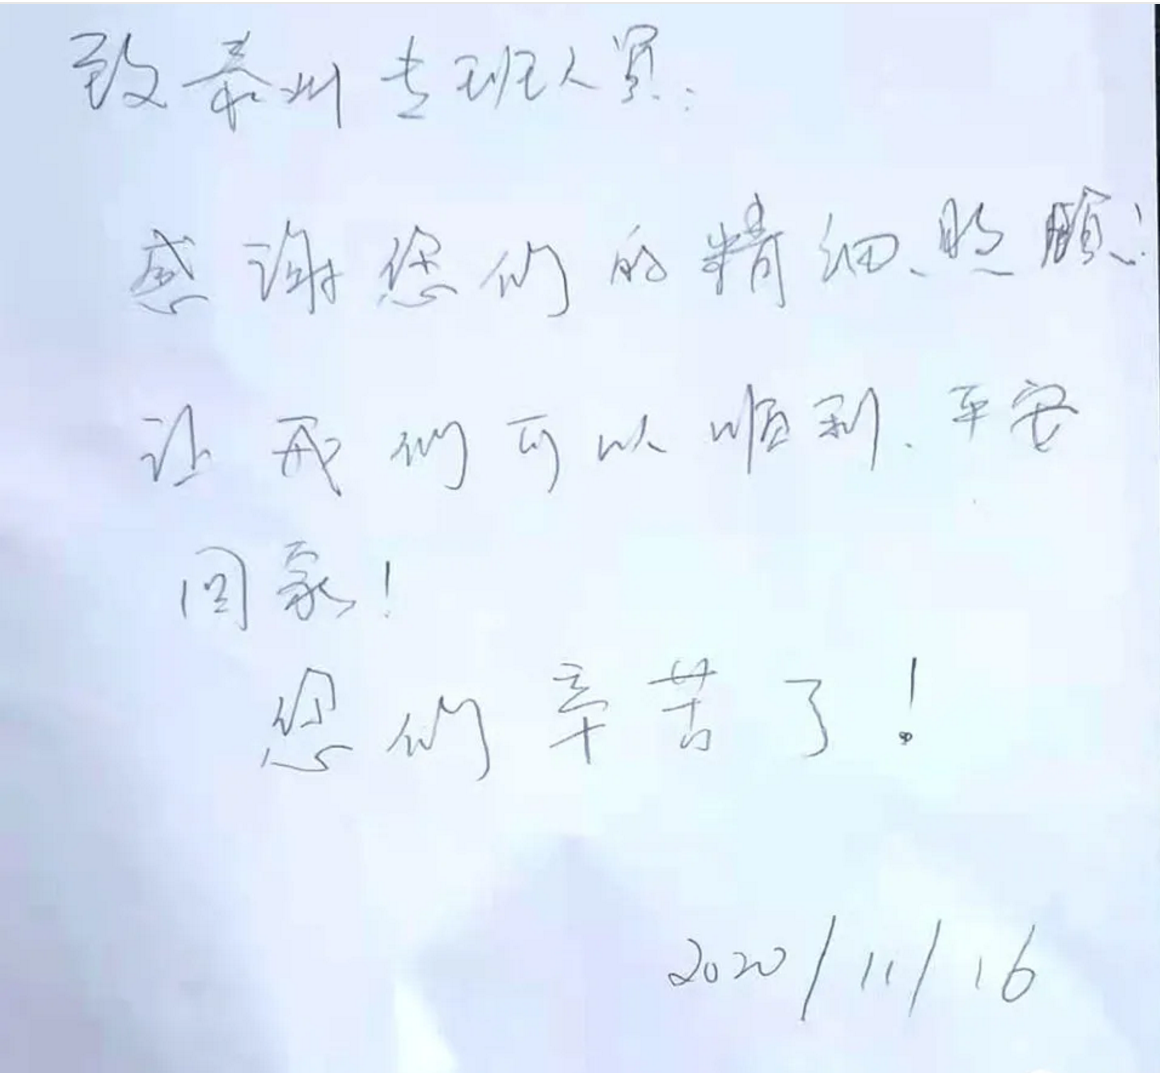 致泰州专班人员:
感谢您们的精细、照顾!
让我们可以顺利、平安
回家!
您们辛苦了!
2020/11/16